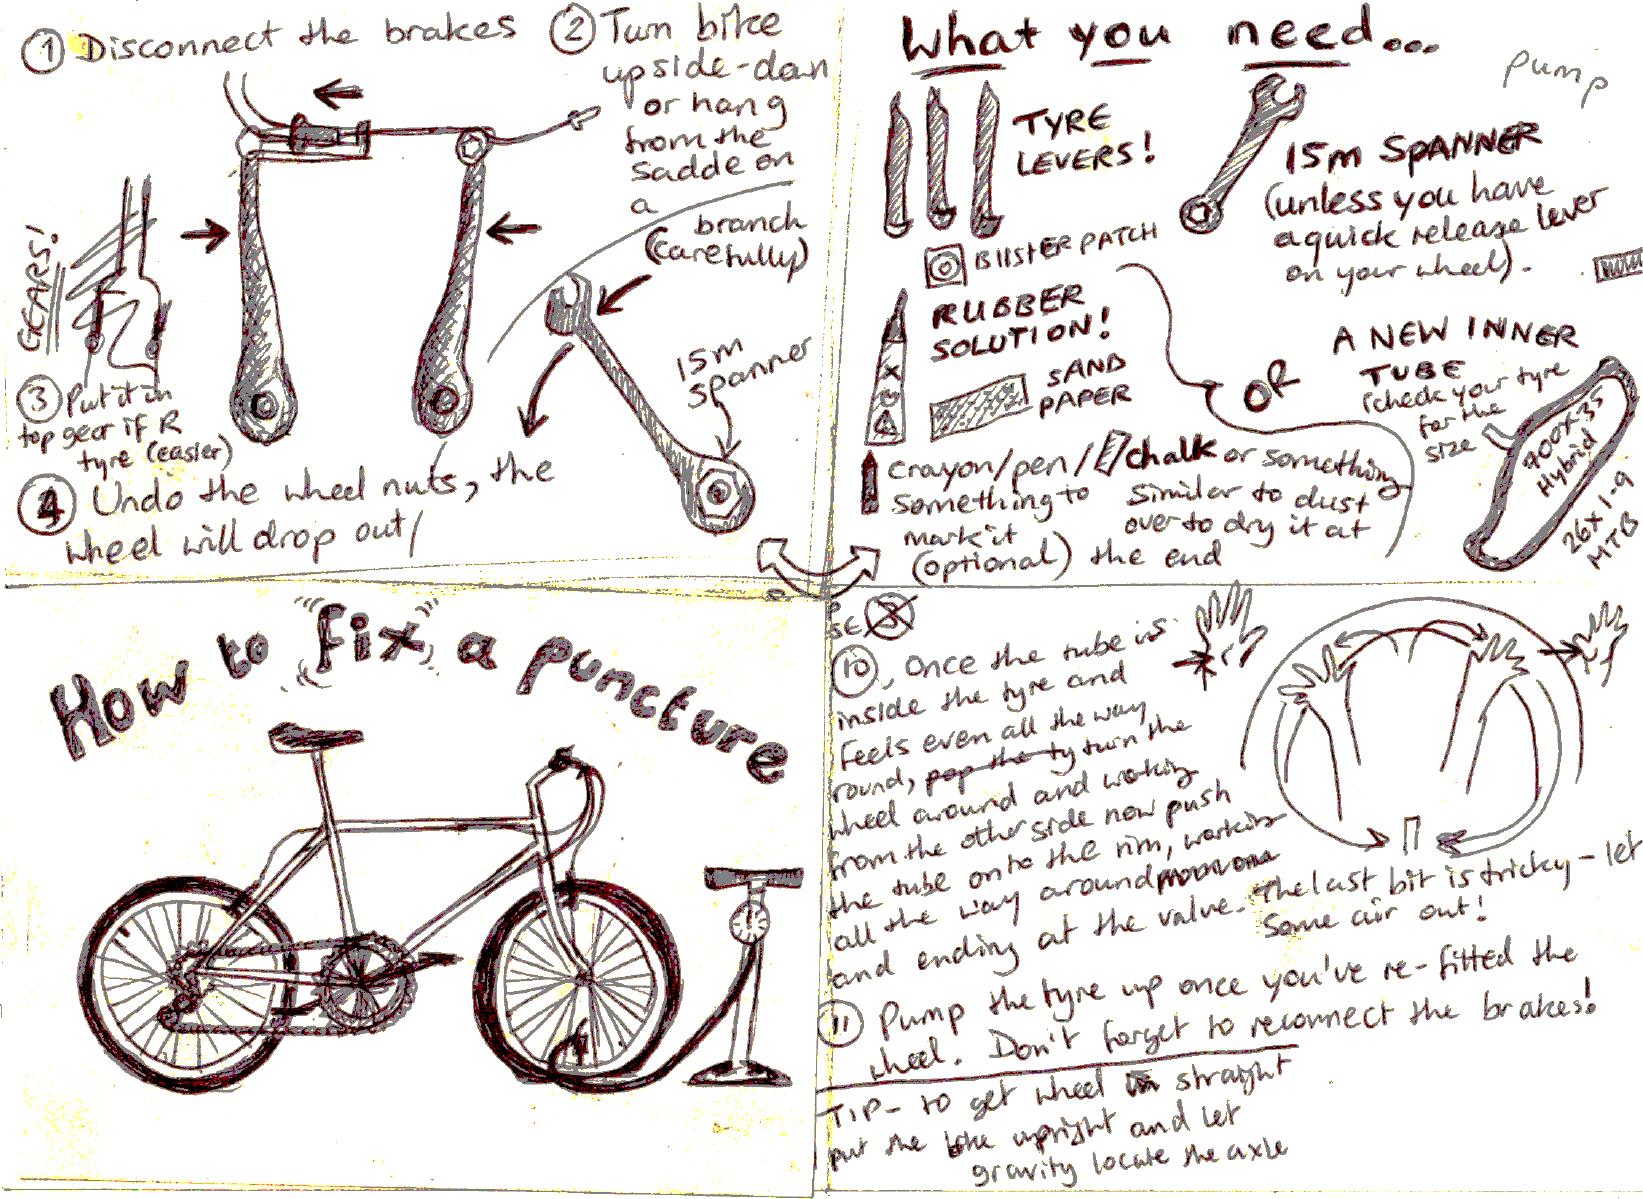 ① Disconnect the brakes
② Turn bike
upside-down
or hang
from the
sadde on
a
branch
(carefully)
GEARS!
15m
spanner
③ Put it in
top gear if R
tyre (easier)
④ Undo the wheel nuts, the
wheel will drop out/
What you need...
pump
TYRE
LEVERS!
15m SPANNER
(unless you have
a quick release lever
on your wheel).
BlISTER PATCH
RUBBER
SOLUTION!
SAND
PAPER
OR
A NEW INNER
TUBE
(check your tyre
for the
size
700x35
Hybrid
26x1.9
MTB
crayon/pen/
something to
mark it
(optional)
chalk or something
similar to dust
over to dry it at
the end
How to fix a puncture
⑩, Once the tube is
inside the tyre and
feels even all the way
round, pop the ty turn the
wheel around and working
from the other side now push
the tube onto the rim, working
all the way around
and ending at the valve.
The last bit is tricky - let
some air out!
⑪ Pump the tyre up once you've re-fitted the
wheel. Don't forget to reconnect the brakes!
TIP - to get wheel in straight
put the bike upright and let
gravity locate the axle